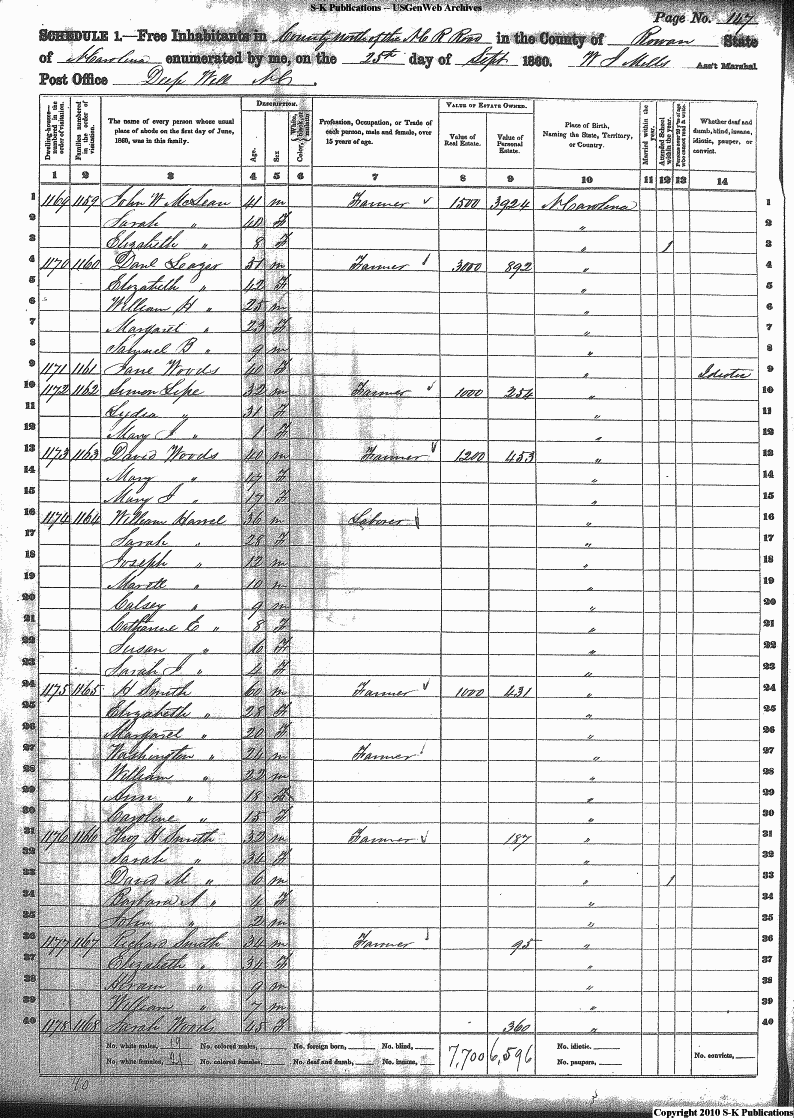 S-K Publications -- USGenWeb Archives
Page No. 147
SCHEDULE 1.—Free Inhabitants in County North of the N C R Road in the County of Rowan State
of N Carolina enumerated by me, on the 25th day of Sept 1860. W J Mills Ass't Marshal
Post Office Deep Well N C
Dwelling-houses—numbered in the order of visitation.
Families numbered in the order of visitation.
The name of every person whose usual place of abode on the first day of June, 1860, was in this family.
DESCRIPTION.
Age.
Sex
Color,
Profession, Occupation, or Trade of each person, male and female, over 15 years of age.
VALUE OF ESTATE OWNED.
Value of Real Estate.
Value of Personal Estate.
Place of Birth, Naming the State, Territory, or Country.
Married within the year.
Attended School within the year.
Whether deaf and dumb, blind, insane, idiotic, pauper, or convict.
1 2 3 4 5 6 7 8 9 10 11 12 13 14
1 1169 1159 John W McLean 41 m Farmer 1500 3924 N Carolina 1
2 Sarah " 40 F " 2
3 Elizabeth " 8 F " 1 3
4 1170 1160 Danl Seager 51 m Farmer 3000 892 " 4
5 Elizabeth " 42 F " 5
6 William H " 25 m " 6
7 Margaret " 23 F " 7
8 Samuel B " 9 m " 8
9 1171 1161 Jane Woods 40 F " Idiotic 9
10 1172 1162 Simon Lipe 32 m Farmer 1000 254 " 10
11 Lydia " 31 F " 11
12 Mary J " 1 F " 12
13 1173 1163 David Woods 40 m Farmer 1200 453 " 13
14 Mary " 47 F " 14
15 Mary J " 17 F " 15
16 1174 1164 William Harrel 36 m Laborer " 16
17 Sarah " 28 F " 17
18 Joseph " 12 m " 18
19 " 10 m " 19
20 Calsey " 9 m " 20
21 Catharine E " 8 F " 21
22 Susan " 6 F " 22
23 Sarah J " 4 F " 23
24 1175 1165 H Smith 60 m Farmer 1000 431 " 24
25 Elizabeth " 28 F " 25
26 Margaret " 20 F " 26
27 Washington " 24 m Farmer " 27
28 William " 22 m " 28
29 Ann " 18 F " 29
30 Caroline " 15 F " 30
31 1176 1166 H Smith 32 m Farmer 187 " 31
32 Sarah " 34 F " 32
33 David M " 6 m " 1 33
34 Barbara A " 4 F " 34
35 John " 2 m " 35
36 1177 1167 Richard Smith 34 m Farmer 95 " 36
37 Elizabeth " 34 F " 37
38 Abram " 9 m " 38
39 William " 7 m " 39
40 1178 1168 Sarah Woods 45 F 360 " 40
No. white males, 19 No. colored males, No. foreign born, No. blind, 7,700 6,596 No. idiotic, No. convicts,
No. white females, 21 No. colored females, No. deaf and dumb, No. insane, No. paupers,
40
Copyright 2010 S-K Publications